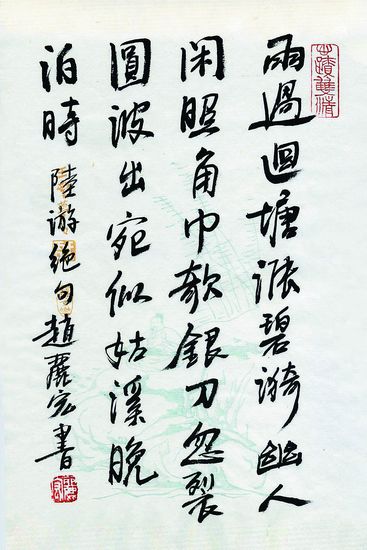 心蹟雙清
雨過迴塘漲碧漪幽人
閑照角巾欹銀刀忽裂
圓波出宛似姑溪晚
泊時
陸游絕句趙麗宏書